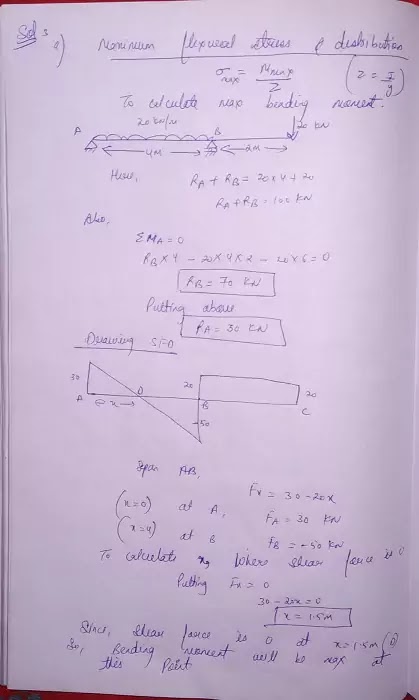 Sol 3
a) Maximum flexural stress & distribution
σmax = Mmax / Z (Z = I/y)
To calculate max bending moment.
20 kN/m 20 kN
A B
4M 2M
Here, RA + RB = 20 x 4 + 20
RA + RB = 100 KN
Also,
ΣMA = 0
RB x 4 - 20 x 4 x 2 - 20 x 6 = 0
RB = 70 KN
Putting above
RA = 30 KN
Drawing SFD
30 20 20
A x D B C
50
Span AB,
Fx = 30 - 20x
(x=0) at A, FA = 30 KN
(x=4) at B FB = -50 KN
To calculate x, where shear force is 0
Putting Fx = 0
30 - 20x = 0
x = 1.5m
Since, shear force is 0 at x = 1.5m (D)
So, Bending moment will be max at
this Point